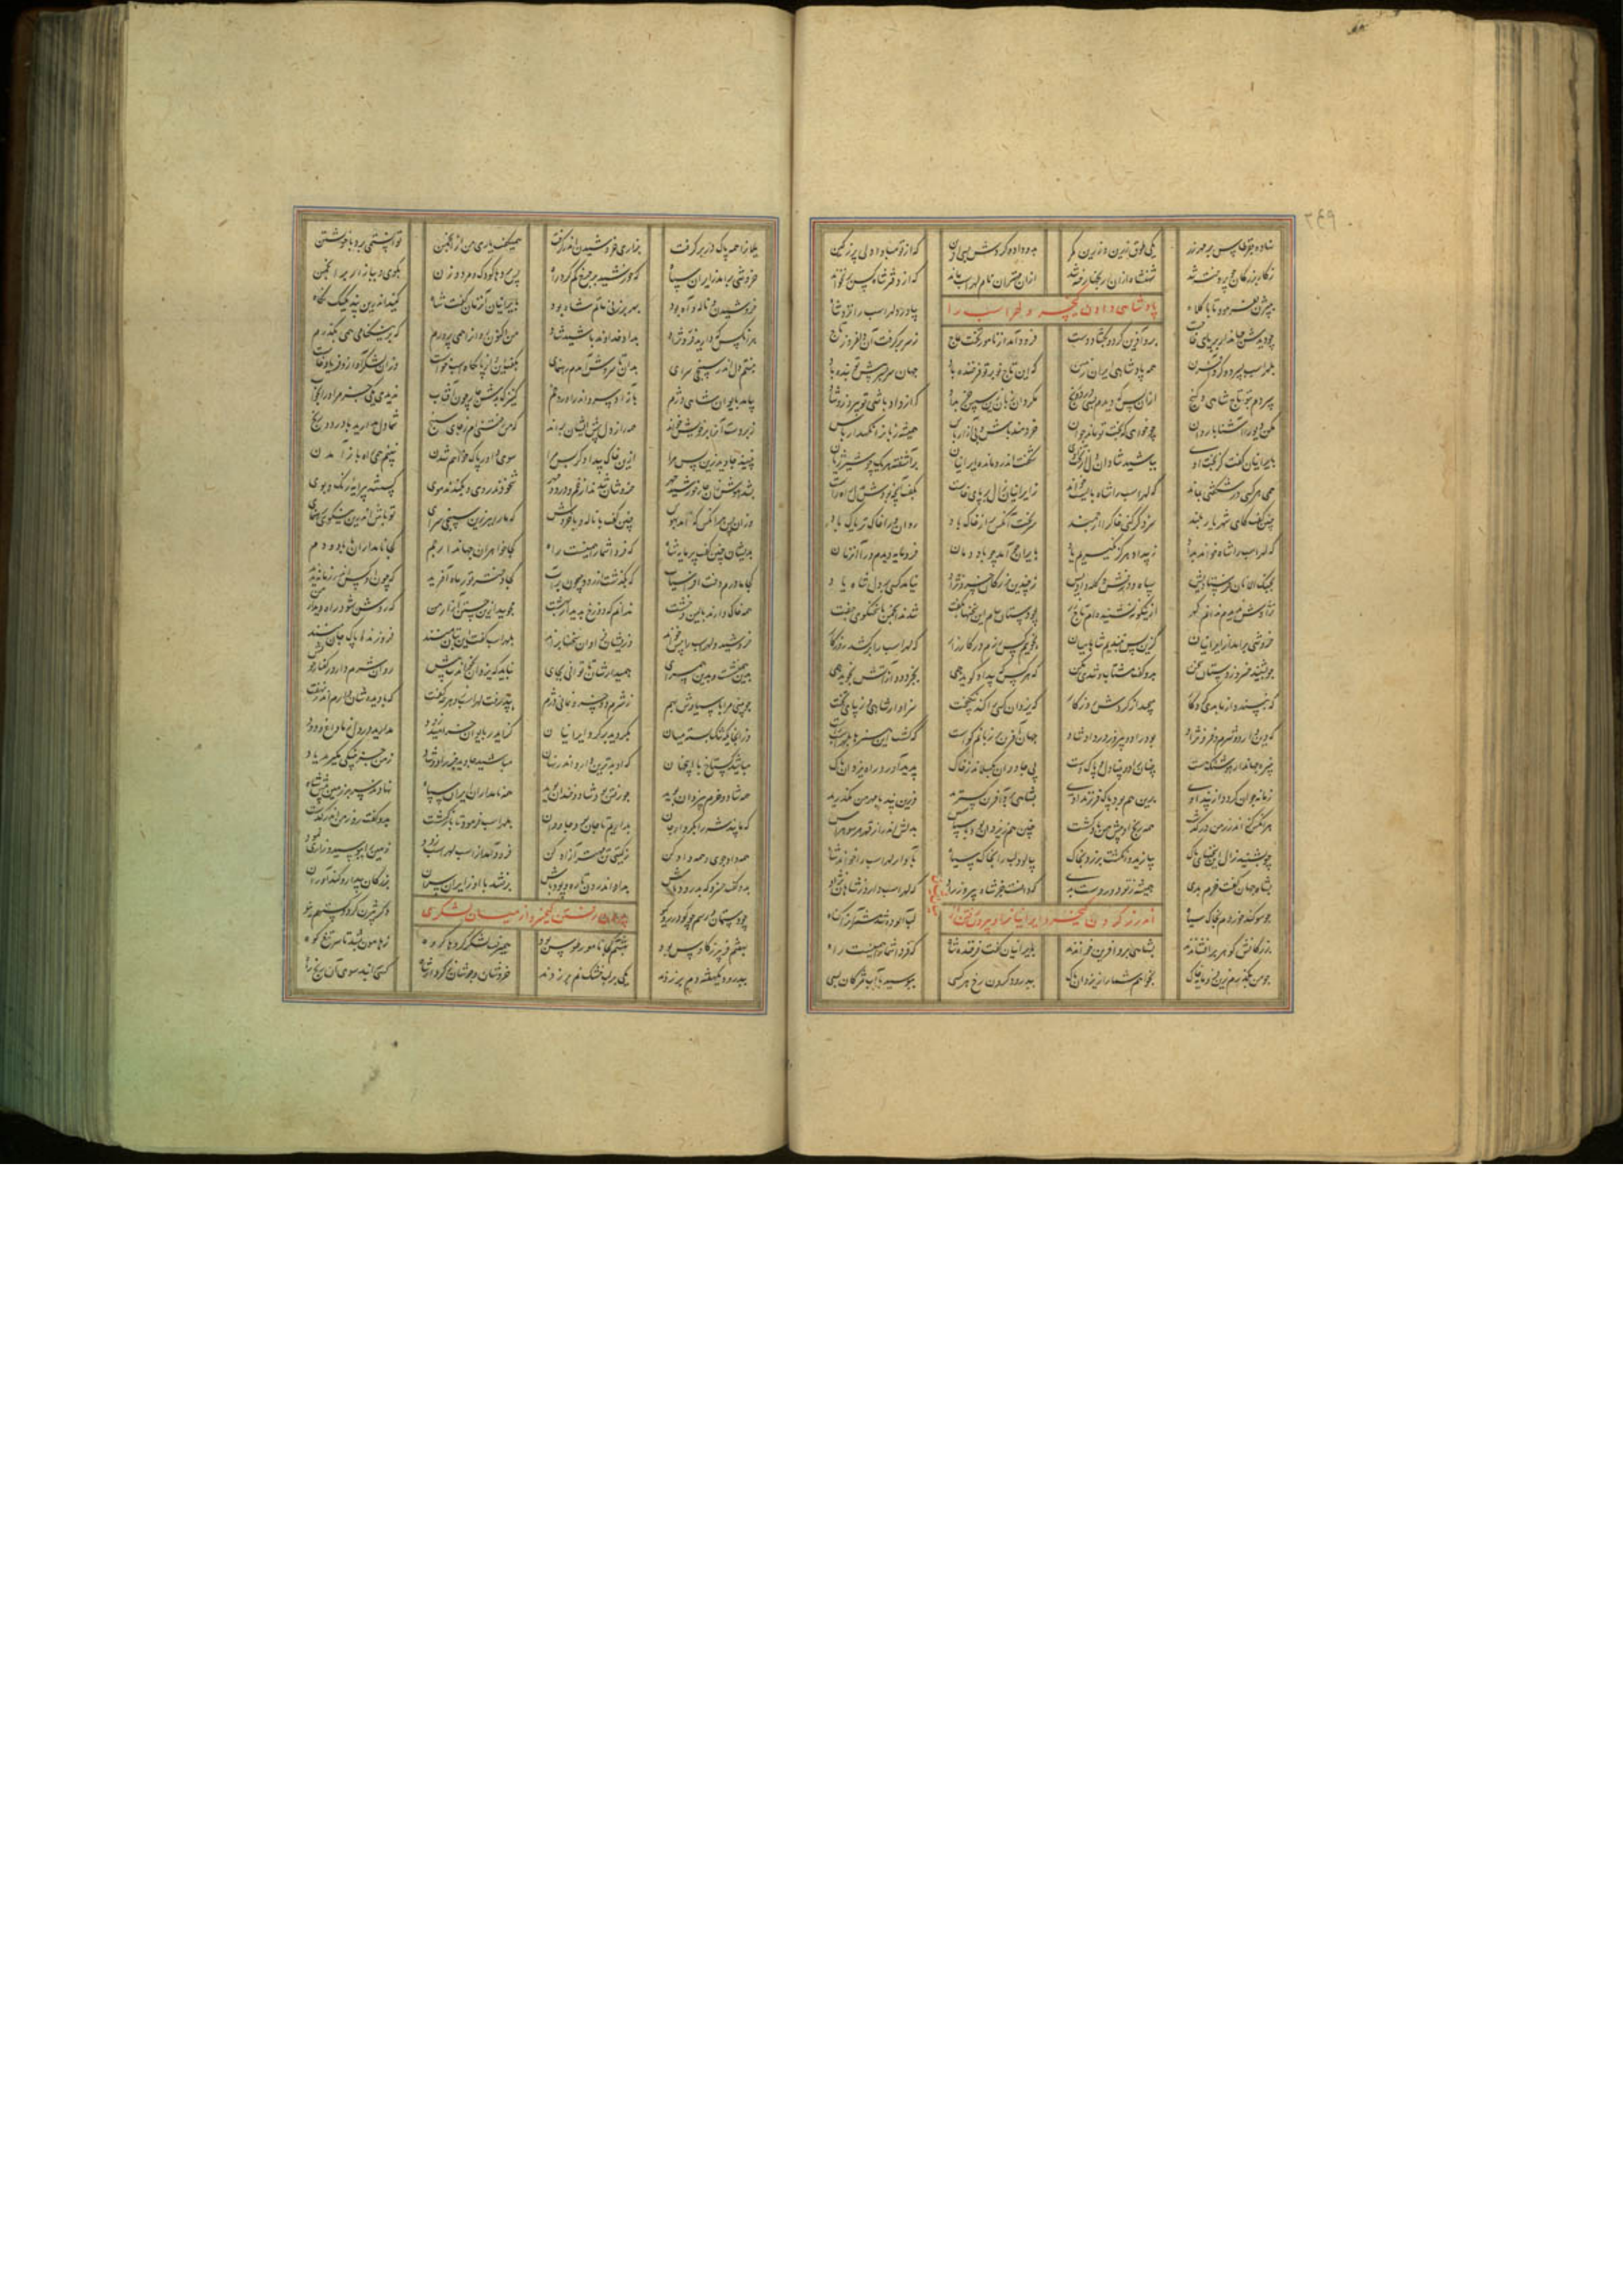 نهاده بقرطاس بر مهر زر یکی طوق زرین و زرین کمر بدو داده کردش بسی آفرین که از تو مبادا دلی پر ز کین
ز کار بزرگان چو پردخته شد شهنشاه ازان رنجها رخته شد ازان مهتران نام لهراسب ماند که از دفتر شاه کس بر نخواند
ببیژن بفرمود تا با کلاه بیاورد لهراسب را نزد شاه
پادشاهی دادن کیخسرو لهراسب را
چو دیدش جهاندار بر پای خاست برو آفرین کرد و بگشاد دست فرود آمد از نامور تخت عاج ز سر برگرفت آن دلفروز تاج
بلهراسب بسپرد و کرد آفرین همه پادشاهی ایران زمین که این تاج نو بر تو فرخنده باد جهان سربسر پیش تو بنده باد
سپردم بتو تاج شاهی و گنج ازان پس که دیدم بسی درد و رنج مگردان زبان زین سپس جز بداد که از داد باشی تو پیروز و شاد
مکن دیو را آشنا با روان چو خواهی که بختت بماند جوان خردمند باش و بی آزار باش همیشه زبانرا نگهدار باش
بایرانیان گفت کز بخت اوی بباشید شادان دل از تخت اوی شگفت اندرو مانده ایرانیان برآشفته هر یک چو شیر ژیان
همی هر کسی در شگفتی بماند که لهراسب را شاه بایست خواند ز ایرانیان زال بر پای خاست بگفت آنچه بودش بدل راه راست
چنین گفت کای شهریار بلند سزد گر کنی خاک را ارجمند سر بخت آنکس پر از خاک باد روان ورا خاک تریاک باد
که لهراسب را شاه خواند بداد ز بیداد هرگز نگیریم یاد بایران چو آمد چو باد دمان فرومایه دیدم ورا آنزمان
بجنگ الانان فرستادیش سپاه و درفش و کله دادیش ز چندین بزرگان خسرو نژاد نیامد کسی بر دل شاه یاد
نژادش ندیدم ندانم گهر ازینگونه نشنیده‌ام تاجور چو دستان سام این سخنها بگفت شدند انجمن با سخنگوی جفت
خروشی برآمد از ایرانیان کزین پس نبندیم شاها میان نجوییم کس نام در کارزار که لهراسب را برکشد روزگار
چو بشنید خسرو ز دستان سخن بدو گفت مشتاب و تندی مکن که هر کس که بیداد گوید همی بجز دود از آتش نجوید همی
که نپسندد از ما بدی دادگر که یزدان کسی را کند نیکبخت سزاوار شاهی و زیبای تخت
که دین دارد و شرم و فر و نژاد بود راد و پیروز جهان آفرین بر زبانم گواست که گشت این هنرها بلهراسب راست
نبیره جهاندار هوشنگ هست بینادل و پاک دست پی جادوان بگسلاند ز خاک پدید آورد راه یزدان پاک
زمانه جوان گردد از پند اوی برین هم بود پاک فرزند اوی بشاهی برو آفرین گسترید وزین پند با مهر من مگذرید
هر آنکس کز اندرز من درگذشت همه رنج او پیش من باد گشت چنین هم ز یزدان بود ناسپاس بدلش اندر آید ز هر سو هراس
چو بشنید زال این سخنهای پاک بیازید و انگشت بر زد بخاک بیالود لب را بخاک سیاه بآواز لهراسب را خواند شاه
بشاه جهان گفت خرم بدی همیشه ز تو دور دست بدی که دانست جز شاه پیروز و راد که لهراسب دارد ز شاهان نژاد
چو سوگند خوردم بخاک سیاه لب آلوده شد مشمر آنرا گناه
اندرز کردن کیخسرو ایرانیانرا
بزرگانش گوهر برافشاندند بشاهی برو آفرین خواندند بایرانیان گفت فرخنده شاه که فردا شما را همینست راه
چو من بگذرم زین فرومایه خاک بخواهم شما را ز یزدان پاک بپدرود کردن رخ هر کسی ببوسید با آب مژگان بسی
یلانرا همه پاک در بر گرفت بزاری خروشیدن اندر گرفت همیگفت یاری من از انجمن توانستمی برد با خویشتن
خروشی برآمد ز ایران سپاه که خورشید بر چرخ گم کرد راه پس پرده با کودک و مرد و زن بکوی و ببازار بر انجمن
خروشیدن و ناله و آه بود بهر برزنی ماتم شاه بود بایرانیان آنزمان گفت شاه کنید اندرین پند یکیک نگاه
هر آنکس که دارید فر و نژاد بداد خداوند باشید شاد من اکنون روانرا همی پرورم که بر نیکنامی همی بگذرم
نبستم دل اندر سپنجی سرای بدان تا سروش آمدم رهنمای بگفت این و از پایگاه اسب خواست وزان لشکر آواز فریاد خاست
بیامد بایوان شاهی دژم بآزاد سرو اندر آورده خم کنیزک بدش چار چون آفتاب ندیدی کسی جز مر او را بخواب
ز پرده بتانرا بر خویش خواند همه راز دل پیش ایشان براند که من رفتنی‌ام ز جای سپنج شما دل مدارید با درد و رنج
نبینید جاوید زین پس مرا ازین خاک بیدادگر بس مرا سوی داور پاک خواهم شدن نبینم همی راه باز آمدن
بشد هوش زان چار خورشید چهر خروشان شدند از غم و درد و مهر شخودند روی و بکندند موی گسستند پیرایه و رنگ و بوی
وزان پس هر آنکس که آمد بهوش چنین گفت با ناله و با خروش که ما را ببر زین سپنجی سرای تو باش اندرین نیکوی رهنمای
بدیشان چنین گفت پرمایه شاه که فردا شما را همینست راه کجا خواهران جهاندار جم کجا نامداران با باد و دم
کجا مادرم دخت افراسیاب که بگذشت ازان رود جیحون بر آب کجا دختر تور ماه آفرید که چون او کس اندر زمانه ندید
همه خاک دارند بالین و خشت ندانم که دوزخ بدند ار بهشت مجویید ازین رفتن آزار من که روشن شود راه دیدار من
خروشید و لهراسب را پیش خواند وزیشان فراوان سخنها براند بلهراسب گفت این بتان منند فروزنده پاک جان منند
برین هم نشست و بدین هم سرای همیدارشان تا توانی بجای نباید که یزدان چو خواندت پیش روان شرم دارد ز کردار خویش
چو بینی مرا با سیاوش بهم ز شرم دو خسرو بمانی دژم پذیرفت لهراسب هرچه گفت که با دیده شان دارم اندر نهفت
وز آنجایگه تنگ بسته میان بگردید بر گرد ایرانیان کز ایدر بایوان خرامید زود مدارید در دل مرا داغ و دود
مباشید گستاخ با این جهان که او بدتری دارد اندر نهان مباشید جاوید جز راد و شاد ز من جز بنیکی مگیرید یاد
همه شاد و خرم بیزدان بوید چو رفتن بود شاد و خندان بوید همه نامداران ایران سپاه نهادند سر بر زمین پیش شاه
که ما پند شه را بکردار جان بداریم تا جان بود جاودان بلهراسب فرمود تا بازگشت بدو گفت روز من اندر گذشت
همه داد جوی و همه داد کن ز گیتی تن مهتر آزاد کن فرود آمد از اسب لهراسب زود زمین را ببوسید و زاری نمود
بدو گفت خسرو که پدرود باش بداد اندرون تار و پود باش برفتند با او ز ایران سران بزرگان بیدار و کنداوران
چو دستان و رستم چو گودرز و گیو دگر بیژن گرد و گستهم نیو
رفتن کیخسرو از میان لشکری
بهفتم فریبرز کاوس بود بهشتم کجا نامور طوس بود همیرفت لشکر گروها گروه ز هامون بشد تا سر تیغ کوه
ببودند یکهفته دم بر زدند یکی بر لب خشک نم بر زدند خروشان و جوشان ز کردار شاه کسی را نبد سوی آن رنج راه